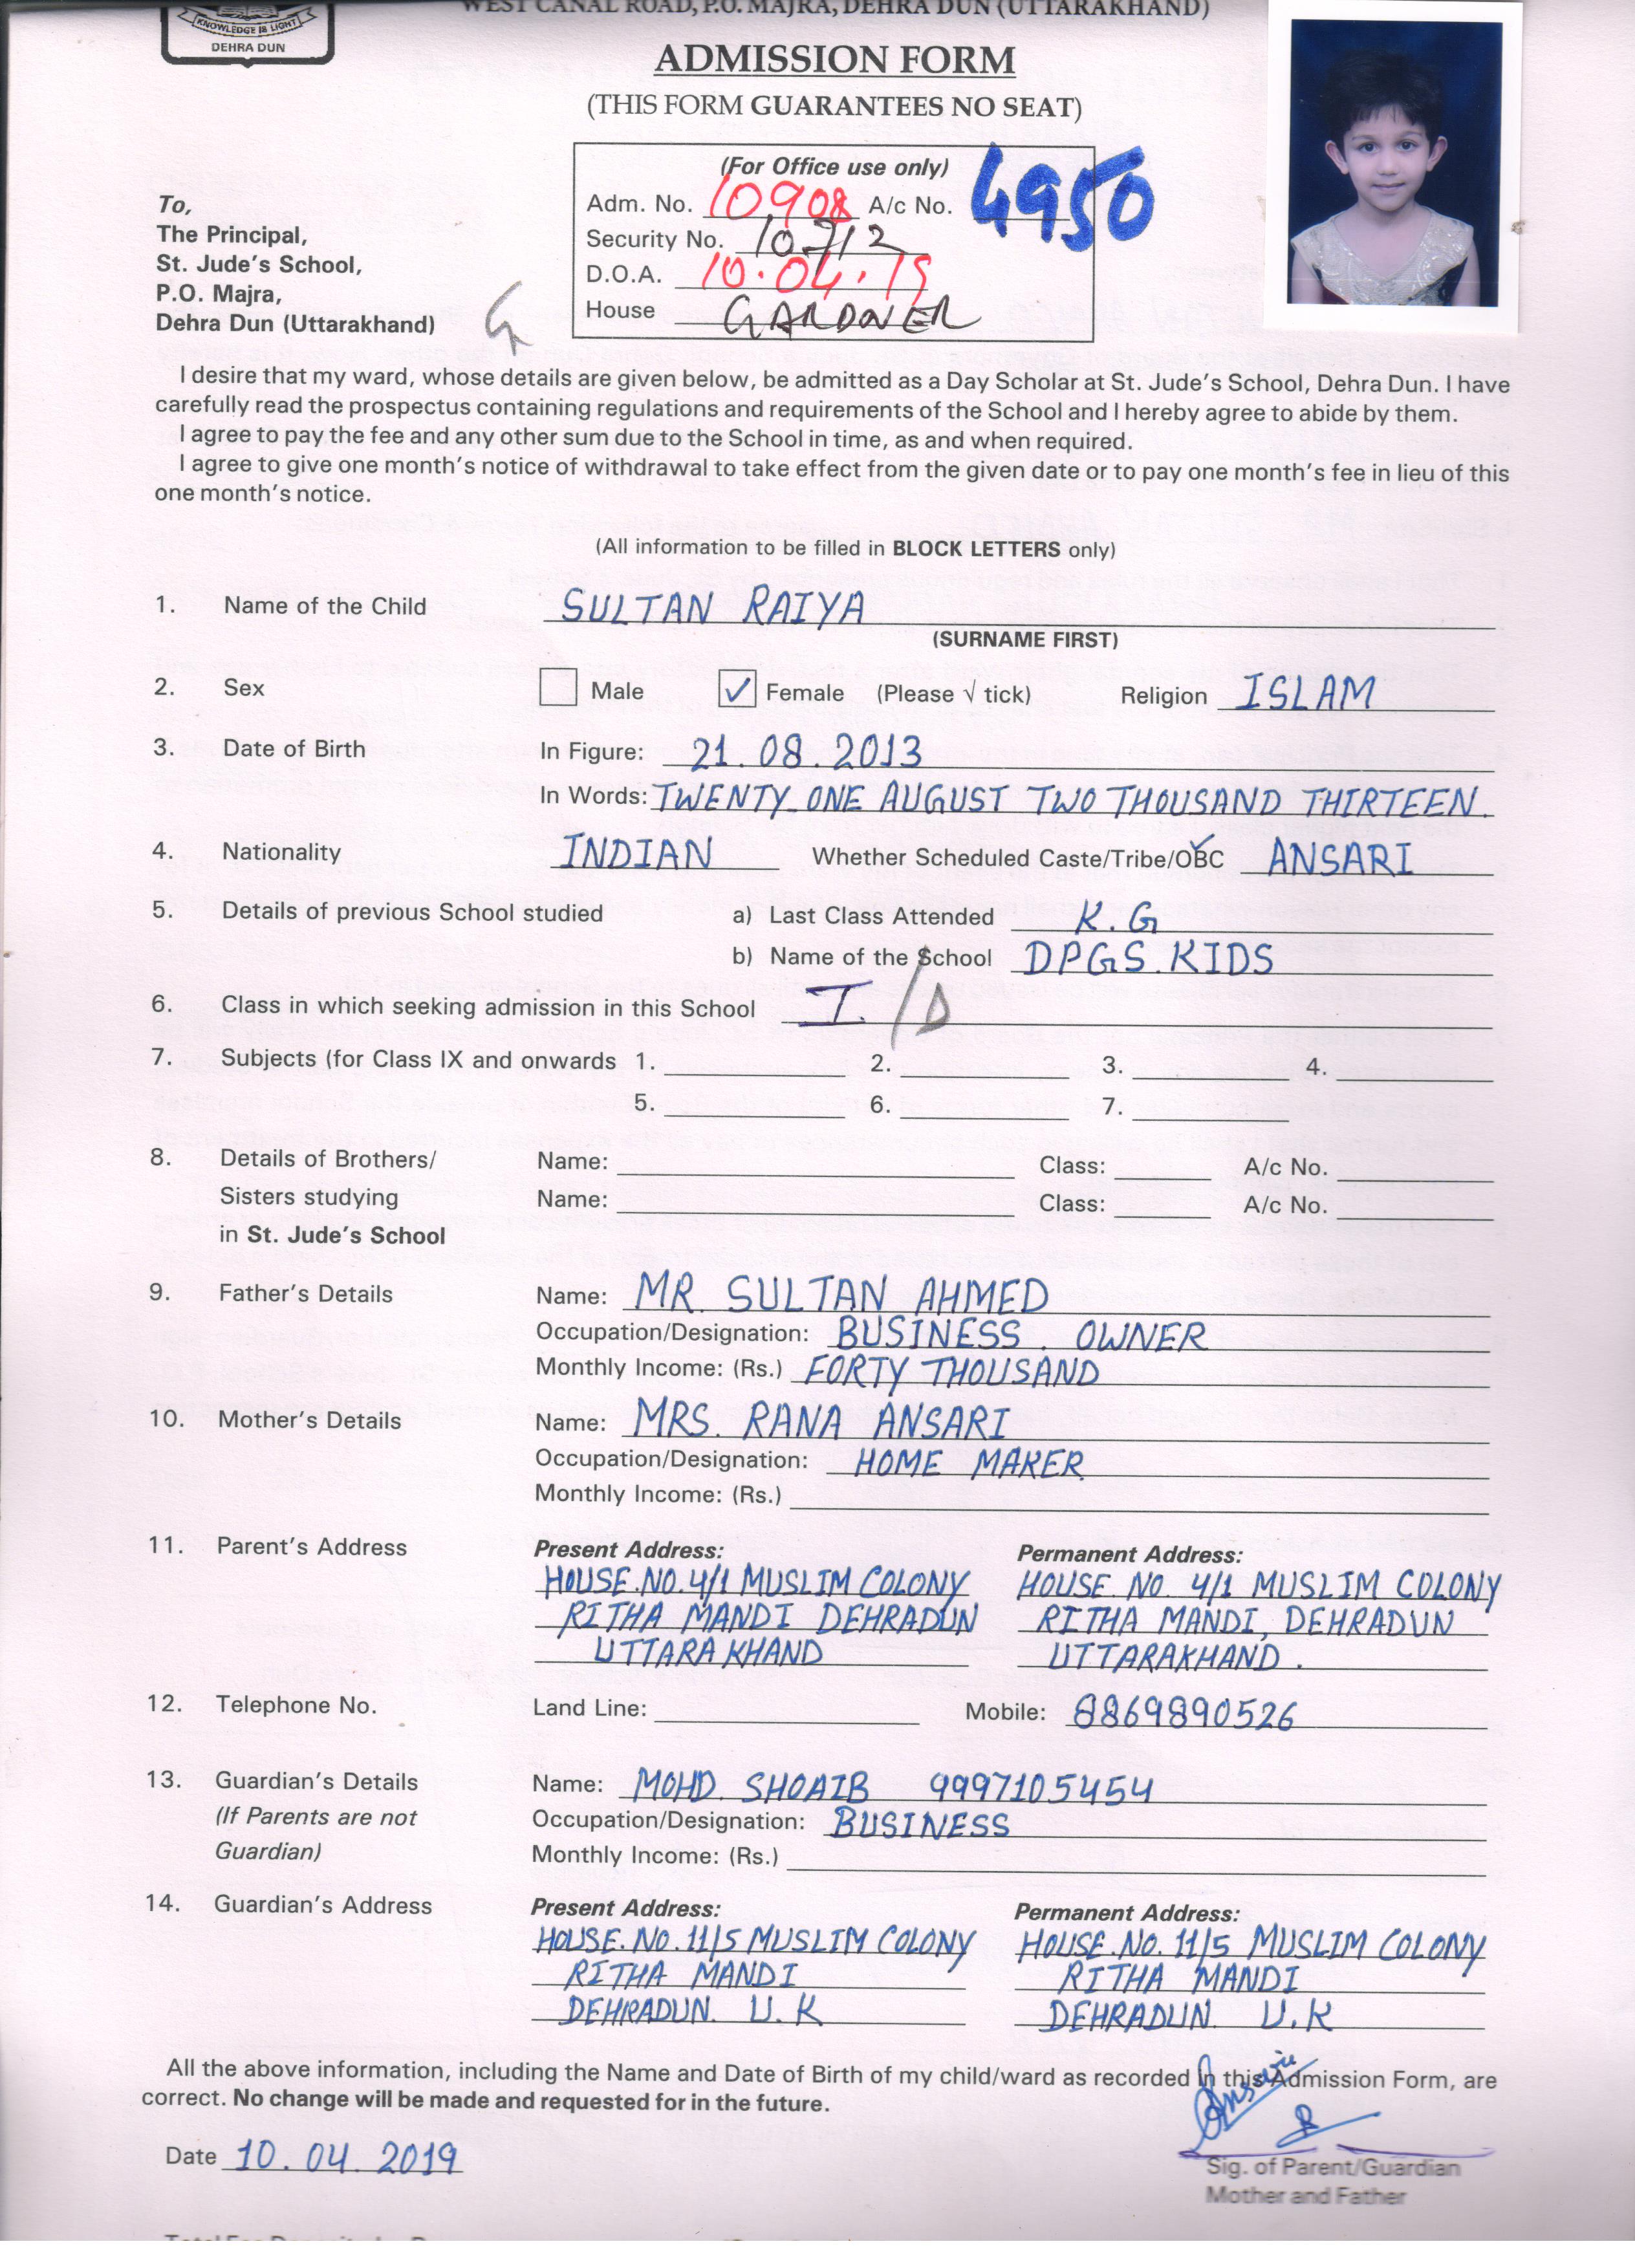 WEST CANAL ROAD, P.O. MAJRA, DEHRA DUN (UTTARAKHAND)
KNOWLEDGE IS LIGHT
DEHRA DUN
ADMISSION FORM
(THIS FORM GUARANTEES NO SEAT)
(For Office use only)
Adm. No. 10908 A/c No. 4950
Security No. 10712
D.O.A. 10.04.19
House GARDNER
To,
The Principal,
St. Jude's School,
P.O. Majra,
Dehra Dun (Uttarakhand)
G
I desire that my ward, whose details are given below, be admitted as a Day Scholar at St. Jude's School, Dehra Dun. I have
carefully read the prospectus containing regulations and requirements of the School and I hereby agree to abide by them.
I agree to pay the fee and any other sum due to the School in time, as and when required.
I agree to give one month's notice of withdrawal to take effect from the given date or to pay one month's fee in lieu of this
one month's notice.
(All information to be filled in BLOCK LETTERS only)
1. Name of the Child SULTAN RAIYA
(SURNAME FIRST)
2. Sex Male ✓ Female (Please √ tick) Religion ISLAM
3. Date of Birth In Figure: 21.08.2013
In Words: TWENTY ONE AUGUST TWO THOUSAND THIRTEEN.
4. Nationality INDIAN Whether Scheduled Caste/Tribe/OBC ✓ ANSARI
5. Details of previous School studied a) Last Class Attended K.G
b) Name of the School DPGS.KIDS
6. Class in which seeking admission in this School I. /D
7. Subjects (for Class IX and onwards 1. 2. 3. 4.
5. 6. 7.
8. Details of Brothers/ Name: Class: A/c No.
Sisters studying Name: Class: A/c No.
in St. Jude's School
9. Father's Details Name: MR. SULTAN AHMED
Occupation/Designation: BUSINESS. OWNER
Monthly Income: (Rs.) FORTY THOUSAND
10. Mother's Details Name: MRS. RANA ANSARI
Occupation/Designation: HOME MAKER
Monthly Income: (Rs.)
11. Parent's Address Present Address: Permanent Address:
HOUSE.NO.4/1 MUSLIM COLONY HOUSE NO 4/1 MUSLIM COLONY
RITHA MANDI DEHRADUN RITHA MANDI, DEHRADUN
UTTARAKHAND UTTARAKHAND.
12. Telephone No. Land Line: Mobile: 8869890526
13. Guardian's Details Name: MOHD. SHOAIB 9997105454
(If Parents are not Occupation/Designation: BUSINESS
Guardian) Monthly Income: (Rs.)
14. Guardian's Address Present Address: Permanent Address:
HOUSE.NO.11/5 MUSLIM COLONY HOUSE.NO.11/5 MUSLIM COLONY
RITHA MANDI RITHA MANDI
DEHRADUN. U.K DEHRADUN. U.K
All the above information, including the Name and Date of Birth of my child/ward as recorded in this Admission Form, are
correct. No change will be made and requested for in the future.
Date 10.04.2019
Sig. of Parent/Guardian
Mother and Father